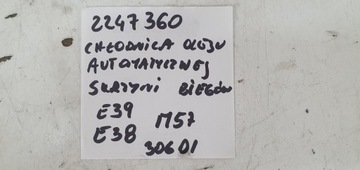 2247360
CHŁODNICA OLEJU
AUTOMATYCZNEJ
SKRZYNI BIEGÓW
E39 M57
E38 306D1